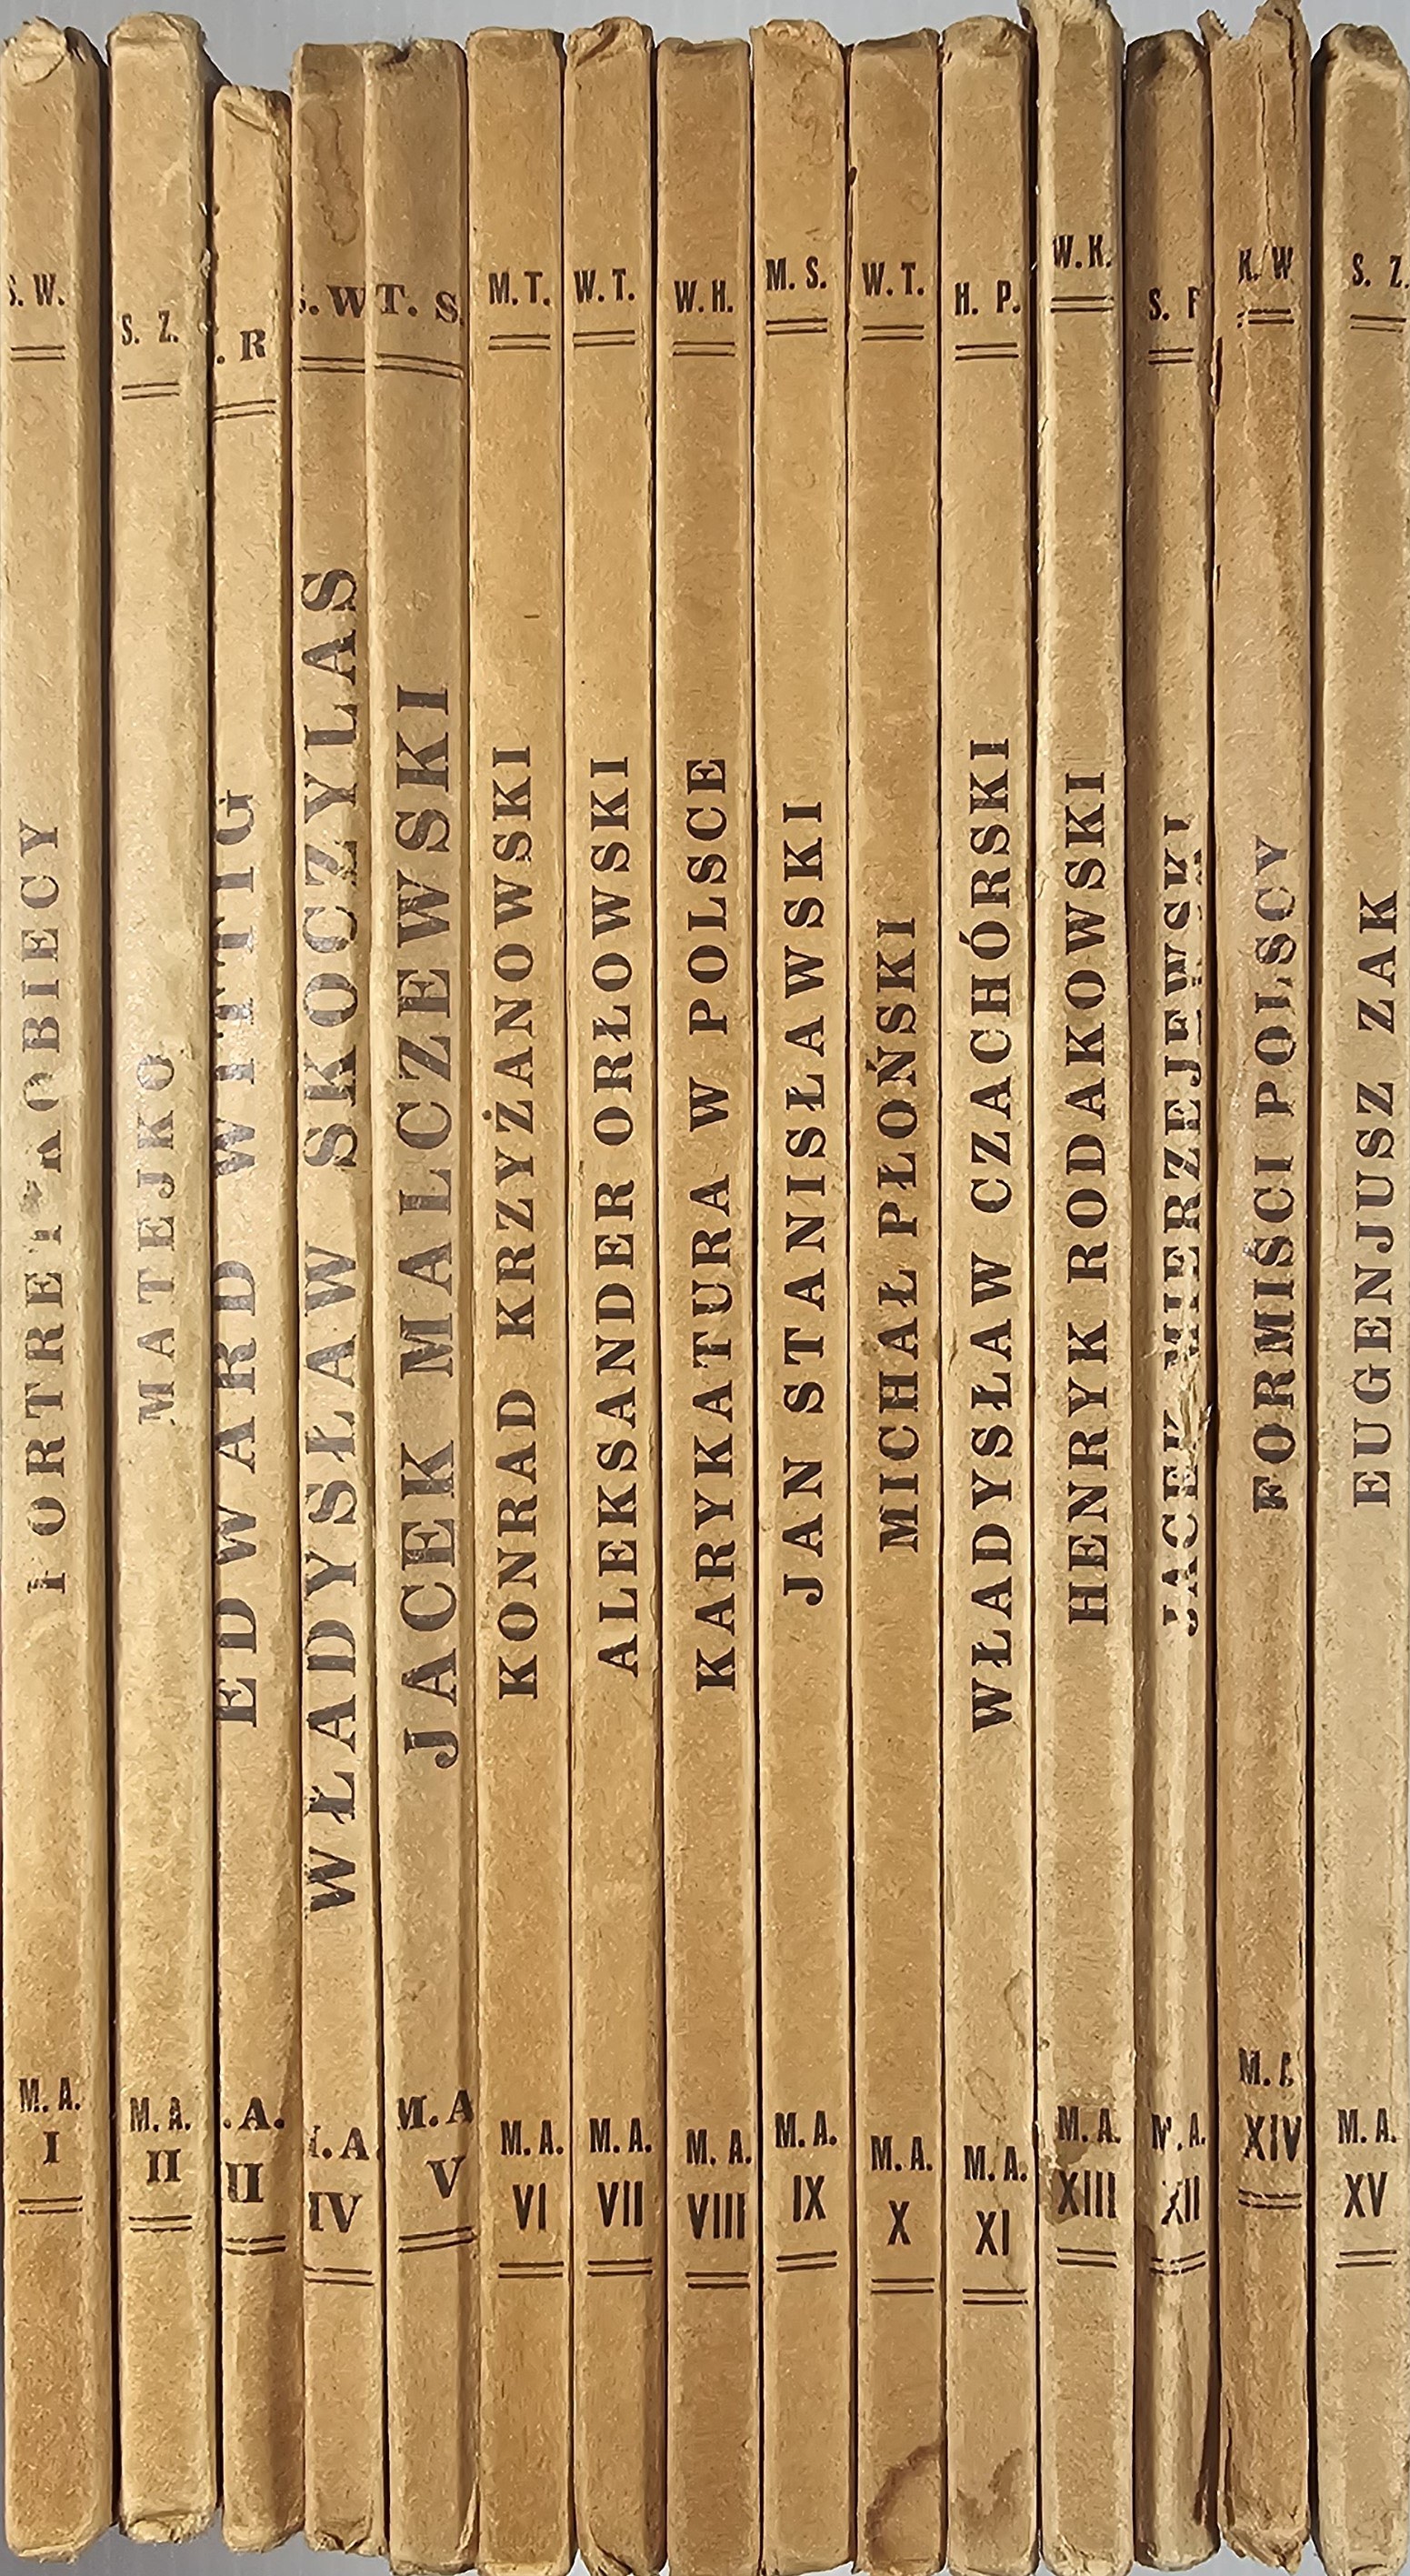 S. W.
PORTRET KOBIECY
M. A.
I
S. Z.
MATEJKO
M. A.
II
. R
EDWARD WITTIG
.A.
II
.W
WŁADYSŁAW SKOCZYLAS
.A.
IV
T. S.
JACEK MALCZEWSKI
M. A
V
M. T.
KONRAD KRZYŻANOWSKI
M. A.
VI
W. T.
ALEKSANDER ORŁOWSKI
M. A.
VII
W. H.
KARYKATURA W POLSCE
M. A.
VIII
M. S.
JAN STANISŁAWSKI
M. A.
IX
W. T.
MICHAŁ PŁOŃSKI
M. A.
X
H. P.
WŁADYSŁAW CZACHÓRSKI
M. A.
XI
W. K.
HENRYK RODAKOWSKI
M. A.
XIII
S.
JACEK MIERZEJEWSKI
M. A.
XII
K. W
FORMIŚCI POLSCY
M. A
XIV
S. Z.
EUGENJUSZ ZAK
M. A.
XV